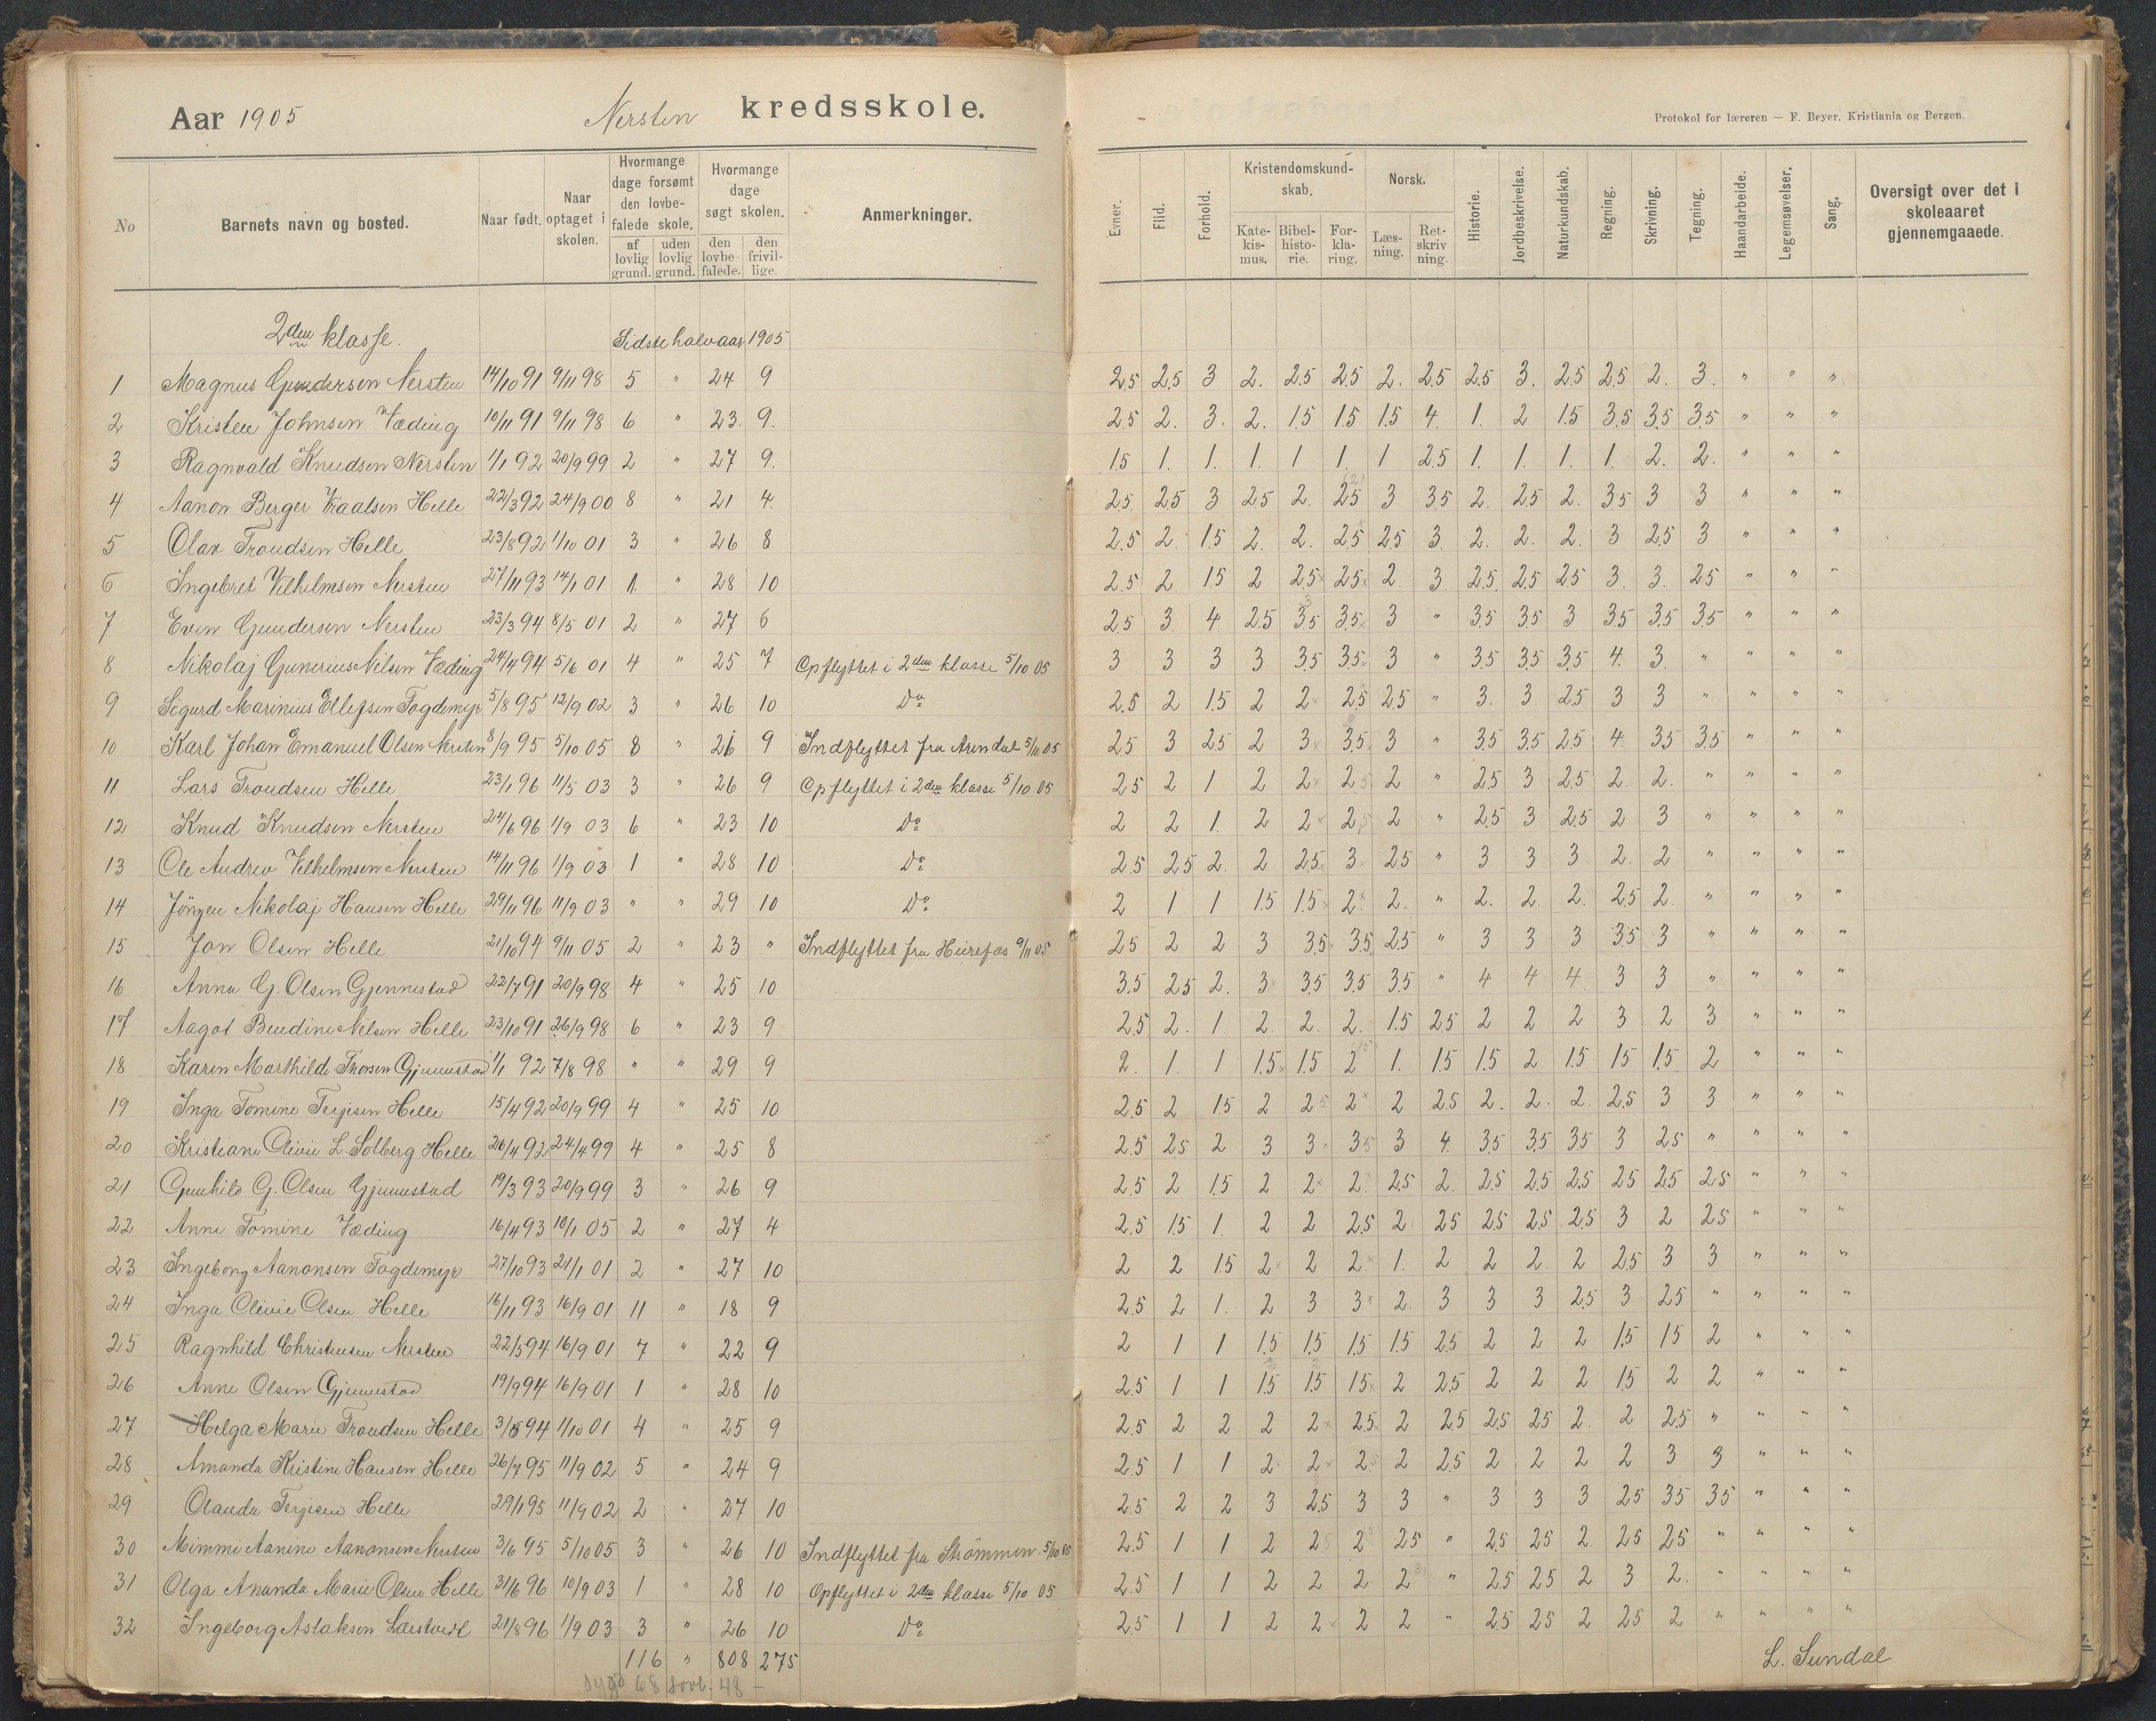 Aar 1905 Nersten kredsskole.
Protokol for læreren — F. Beyer, Kristiania og Bergen.
No Barnets navn og bosted. Naar født. Naar optaget i skolen. Hvormange dage forsømt den lovbefalede skole. af lovlig grund. uden lovlig grund. Hvormange dage søgt skolen. den lovbefalede. den frivillige. Anmerkninger. Evner. Flid. Forhold. Kristendomskundskab. Katekismus. Bibelhistorie. Forklaring. Norsk. Læsning. Retskrivning. Historie. Jordbeskrivelse. Naturkundskab. Regning. Skrivning. Tegning. Haandarbeide. Legemsøvelser. Sang. Oversigt over det i skoleaaret gjennemgaaede.
2den klasse. Sidste halvaar 1905
1 Magnus Gundersen Nersten 14/10 91 9/11 98 5 " 24 9 2.5 2.5 3 2. 2.5 2.5 2. 2.5 2.5 3. 2.5 2.5 2. 3. " " "
2 Kristen Johnsen Væding 10/11 91 9/11 98 6 " 23. 9. 2.5 2. 3. 2. 1.5 1.5 1.5 4. 1. 2 1.5 3.5 3.5 3.5 " " "
3 Ragnvald Knudsen Nersten 1/1 92 20/9 99 2 " 27 9. 1.5 1. 1. 1. 1 1. 1 2.5 1. 1. 1. 1. 2. 2. " " "
4 Aanon Berger Kaalsen Helle 22/3 92 24/9 00 8 " 21 4. 2.5 2.5 3 2.5 2. 2.5 3 3.5 2. 2.5 2. 3.5 3 3 " " "
5 Olav Trondsen Helle 23/8 92 1/10 01 3 " 26 8 2.5 2 1.5 2. 2. 2.5 2.5 3. 2. 2. 2. 3 2.5 3 " " "
6 Ingebret Vilhelmsen Nersten 27/11 93 14/1 01 1. " 28 10 2.5 2 1.5 2 2.5 2.5 2. 3. 2.5 2.5 2.5 3. 3. 2.5 " " "
7 Even Gundersen Nersten 23/3 94 8/5 01 2 " 27 6 2.5 3. 4. 2.5 3.5 3.5 3 " 3.5 3.5 3 3.5 3.5 3.5 " " "
8 Nikolaj Gunerius Nilsen Væding 24/4 94 5/6 01 4 " 25 7 Opflyttet i 2den klasse 5/10 05 3 3 3 3 3.5 3.5 3 " 3.5 3.5 3.5 4. 3. " " " "
9 Sigurd Marinius Ellefsen Fogdemyr 5/8 95 12/9 02 3 " 26 10 Do 2.5 2 1.5 2 2 2.5 2.5 " 3. 3 2.5 3 3 " " " "
10 Karl Johan Emanuel Olsen Nersten 8/9 95 5/10 05 8 " 26 9 Indflyttet fra Arendal 5/10 05 2.5 3 2.5 2 3 3.5 3 " 3.5 3.5 2.5 4 3.5 3.5 " " "
11 Lars Trondsen Helle 23/1 96 11/5 03 3 " 26 9 Opflyttet i 2den klasse 5/10 05 2.5 2 1 2 2 2.5 2 " 2.5 3 2.5 2. 2. " " " "
12 Knud Knudsen Nersten 24/6 96 1/9 03 6 " 23 10 Do 2 2 1. 2 2 2.5 2 " 2.5 3 2.5 2 3 " " " "
13 Ole Andrev Vilhelmsen Nersten 14/11 96 1/9 03 1 " 28 10 Do 2.5 2.5 2. 2 2.5 3 2.5 " 3 3 3 2. 2 " " " "
14 Jörgen Nikolaj Hansen Helle 29/11 96 11/9 03 " " 29 10 Do 2 1 1 1.5 1.5 2 2. " 2. 2. 2. 2.5 2. " " " "
15 Jon Olsen Helle 21/10 94 9/11 05 2 " 23 " Indflyttet fra Heirefos 9/11 05 2.5 2 2 3 3.5 3.5 2.5 " 3 3 3 3.5 3 " " " "
16 Anna G. Olsen Gjennestad 22/7 91 20/9 98 4 " 25 10 3.5 2.5 2. 3 3.5 3.5 3.5 " 4 4 4 3 3 " " " "
17 Aagot Bendine Nilsen Helle 23/10 91 26/9 98 6 " 23 9 2.5 2. 1. 2. 2. 2. 1.5 2.5 2 2 2 3 2 3 " " "
18 Karen Marthilde Thorsen Gjennestad 1/1 92 7/8 98 " " 29 9 2. 1. 1 1.5 1.5 2 1. 1.5 1.5 2 1.5 1.5 1.5 2 " " "
19 Inga Tomine Terjesen Helle 15/4 92 20/9 99 4 " 25 10 2.5 2 1.5 2 2.5 2 2 2.5 2. 2. 2. 2.5 3 3 " " "
20 Kristiane Olivie L. Solberg Helle 26/4 92 24/4 99 4 " 25 8 2.5 2.5 2 3 3 3.5 3 4. 3.5 3.5 3.5 3 2.5 " " " "
21 Gunhild G. Olsen Gjennestad 19/3 93 20/9 99 3 " 26 9 2.5 2 1.5 2 2 2. 2.5 2. 2.5 2.5 2.5 2.5 2.5 2.5 " " "
22 Anne Tomine Væding 16/4 93 10/1 05 2 " 27 4 2.5 1.5 1. 2 2 2.5 2 2.5 2.5 2.5 2.5 3 2 2.5 " " "
23 Ingeborg Aanonsen Fogdemyr 27/10 93 21/1 01 2 " 27 10 2 2 1.5 2 2 2 1. 2 2 2. 2 2.5 3 3 " " "
24 Inga Olivie Olsen Helle 16/11 93 16/9 01 11 " 18 9 2.5 2 1. 2 3 3 2. 3 3 3 2.5 3 2.5 " " " "
25 Ragnhild Christensen Nersten 22/5 94 16/9 01 7 " 22 9 2 1 1 1.5 1.5 1.5 1.5 2.5 2 2 2 1.5 1.5 2 " " "
26 Anne Olsen Gjennestad 19/9 94 16/9 01 1 " 28 10 2.5 1 1 1.5 1.5 1.5 2 2.5 2 2 2 1.5 2 2 " " "
27 Helga Marie Trondsen Helle 3/5 94 1/10 01 4 " 25 9 2.5 2 2 2 2 2.5 2 2.5 2.5 2.5 2. 2 2.5 " " " "
28 Amanda Kristine Hansen Helle 26/7 95 11/9 02 5 " 24 9 2.5 1 1 2 2 2.5 2 2.5 2 2 2 2 3 3 " " "
29 Olauda Terjesen Helle 29/1 95 11/9 02 2 " 27 10 2.5 2 2 3 2.5 3 3 " 3 3 3 2.5 3.5 3.5 " " "
30 Mimmi Aanine Aanonsen Nersten 3/6 95 5/10 05 3 " 26 10 Indflyttet fra Strømmen 5/10 05 2.5 1 1 2 2.5 2 2.5 " 2.5 2.5 2. 2.5 2.5 " " " "
31 Olga Ananda Marie Olsen Helle 31/6 96 10/9 03 1 " 28 10 Opflyttet i 2den klasse 5/10 05 2.5 1 1 2 2 2 2 " 2.5 2.5 2 3 2. " " " "
32 Ingeborg Aslaksen Lærstveit 21/8 96 1/9 03 3 " 26 10 Do 2.5 1 1 2 2 2 2 " 2.5 2.5 2 2.5 2 " " " "
116 " 808 275
L. Sundal
sygd 68 lovl. 48 –